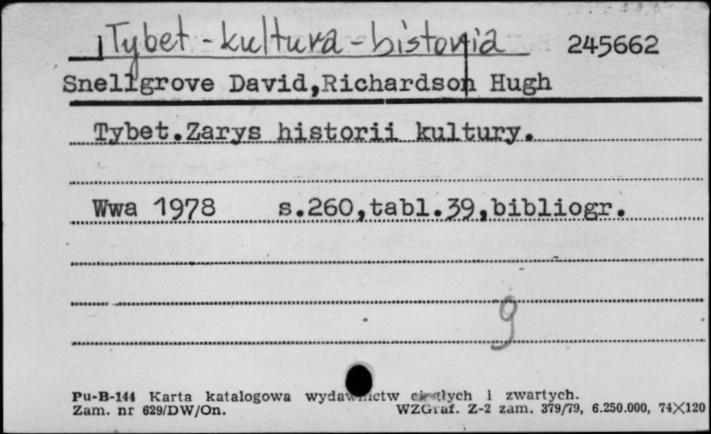 Tybet - kultura - historia 245662
Snellgrove David,Richardson Hugh
Tybet.Zarys historii kultury.
Wwa 1978 s.260,tabl.39,bibliogr.
g
Pu-B-144 Karta katalogowa wydawnictw ciągłych i zwartych.
Zam. nr 629/DW/On. WZGraf. Z-2 zam. 379/79, 6.250.000, 74×120